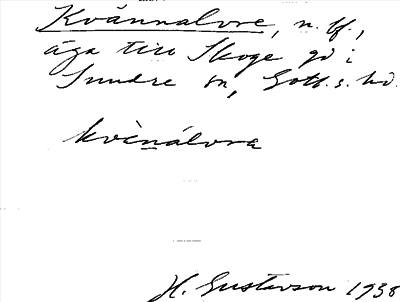 Kvännalvre, n. ff,
äga till Skoge gd i
Sundre sn, Gotl. s. hd.
kvènálvra
H. Gustavson 1938